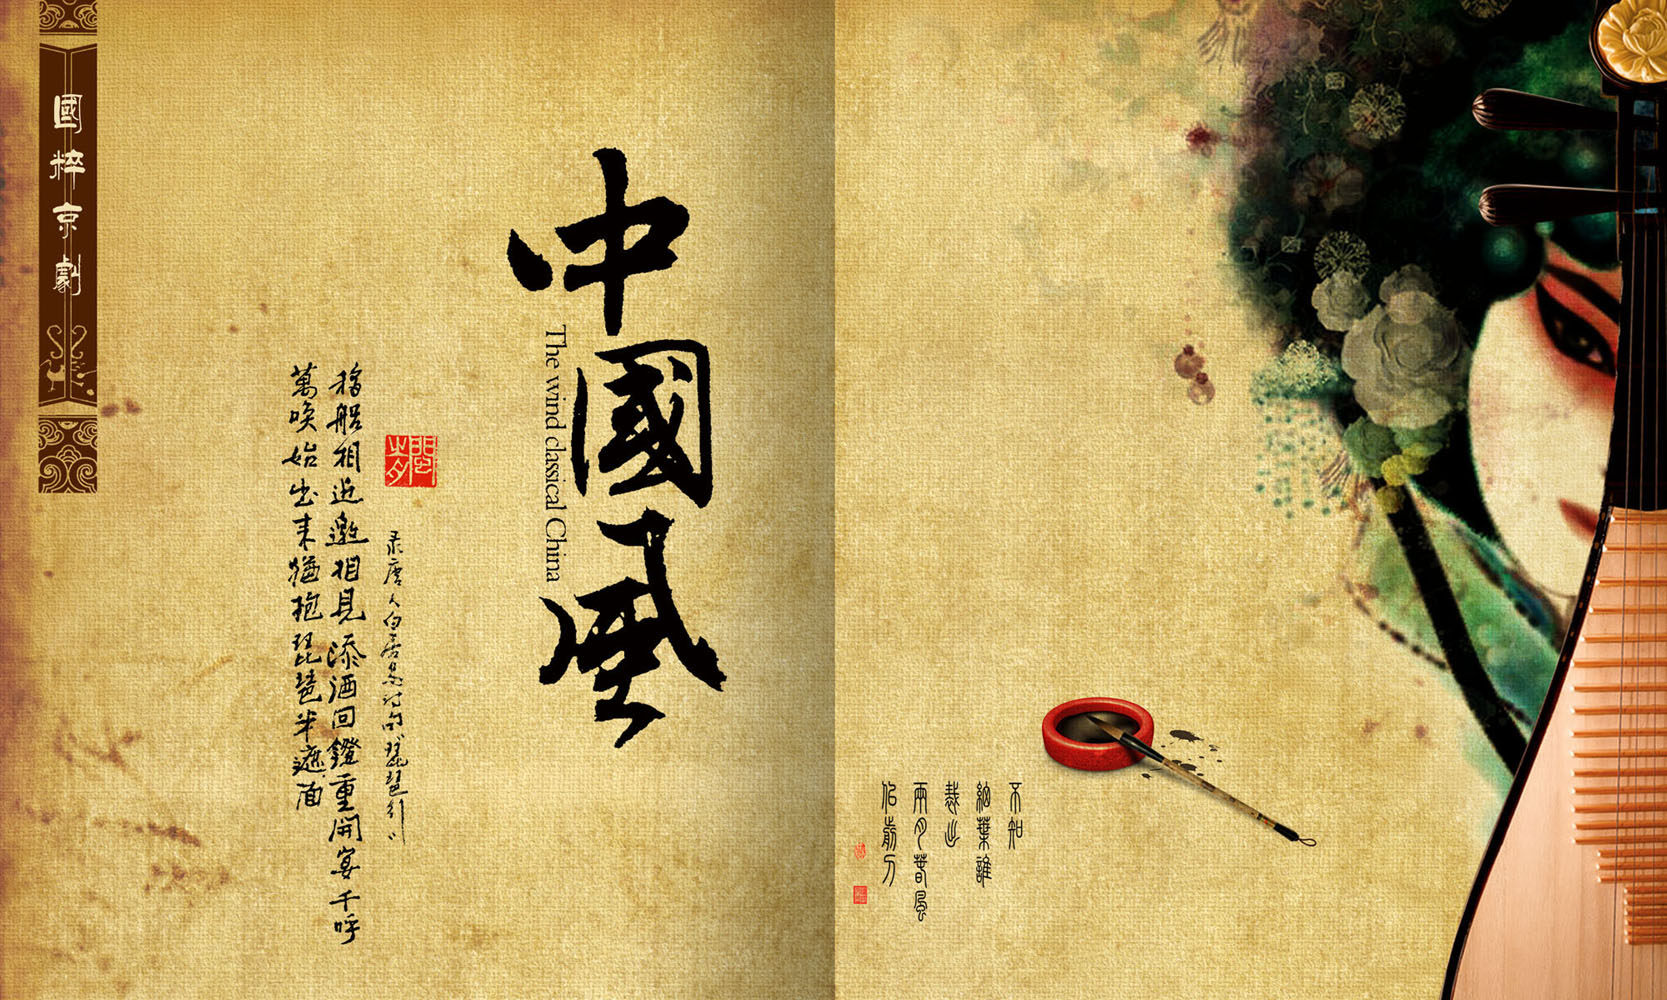 國粹京劇
中國風
The wind classical China
录唐人白居易诗句《琵琶行》
移船相近邀相見添酒回鐙重開宴千呼
萬唤始出来猶抱琵琶半遮面
不知
細葉誰
裁出
兩月春風
似前刀